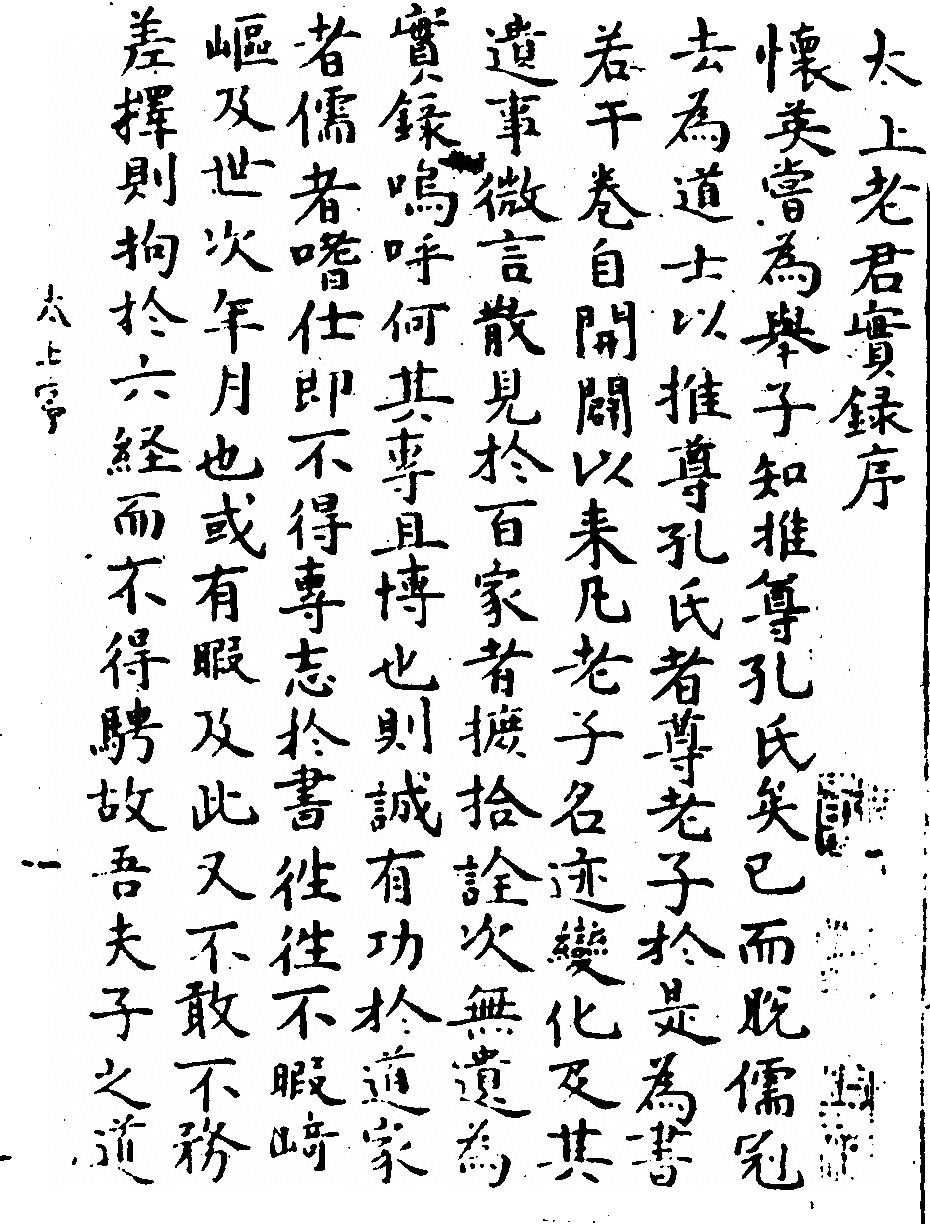 太上老君實録序
懷英嘗為舉子知推尊孔氏矣已而脫儒冠
去為道士以推尊孔氏者尊老子於是為書
若干卷自開闢以来凡老子名迹變化及其
遺事微言散見於百家者摭拾詮次無遺為
實録嗚呼何其専且博也則誠有功於道家
者儒者嗜仕即不得專志於書徃徃不暇崎
嶇及世次年月也或有暇及此又不敢不務
差擇則拘於六経而不得騁故吾夫子之道
太上序